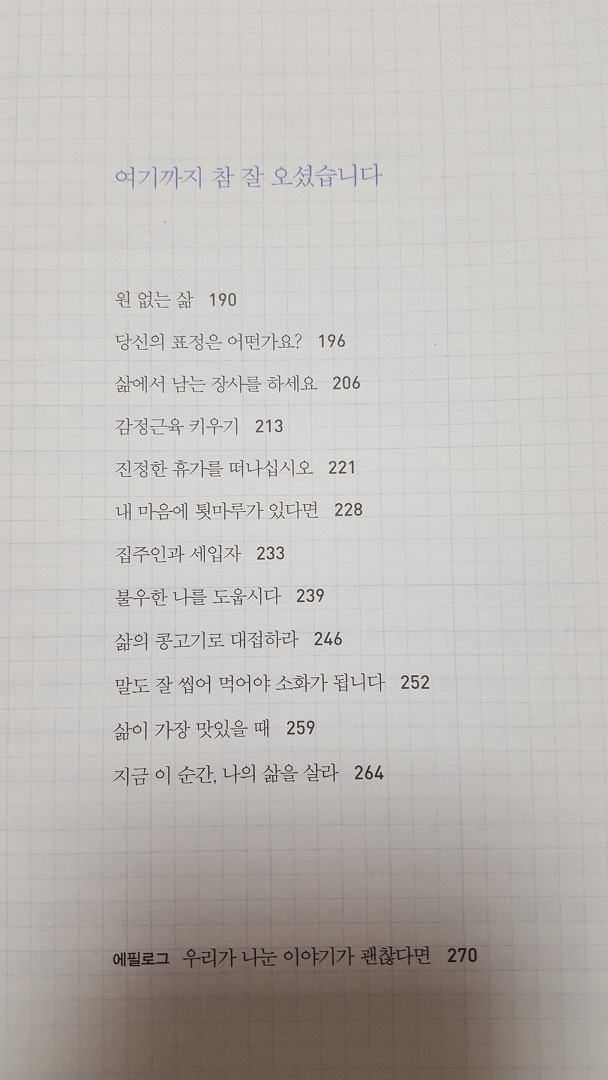 여기까지 참 잘 오셨습니다
원 없는 삶 190
당신의 표정은 어떤가요? 196
삶에서 남는 장사를 하세요 206
감정근육 키우기 213
진정한 휴가를 떠나십시오 221
내 마음에 툇마루가 있다면 228
집주인과 세입자 233
불우한 나를 도웁시다 239
삶의 콩고기로 대접하라 246
말도 잘 씹어 먹어야 소화가 됩니다 252
삶이 가장 맛있을 때 259
지금 이 순간, 나의 삶을 살라 264
에필로그 우리가 나눈 이야기가 괜찮다면 270